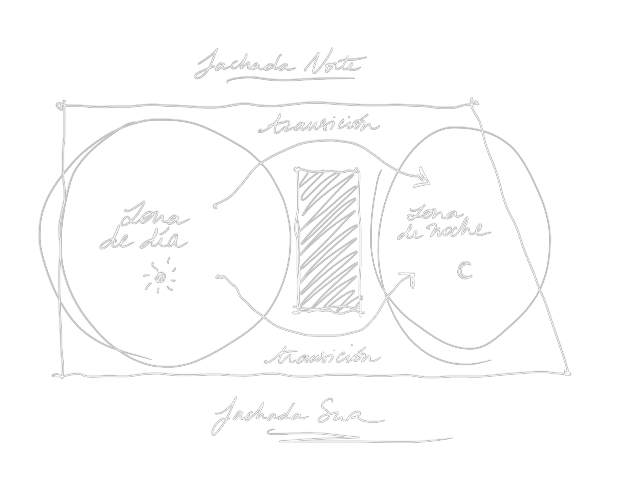 Fachada Norte
transición
Zona
de día
Zona
de noche
transición
Fachada Sur